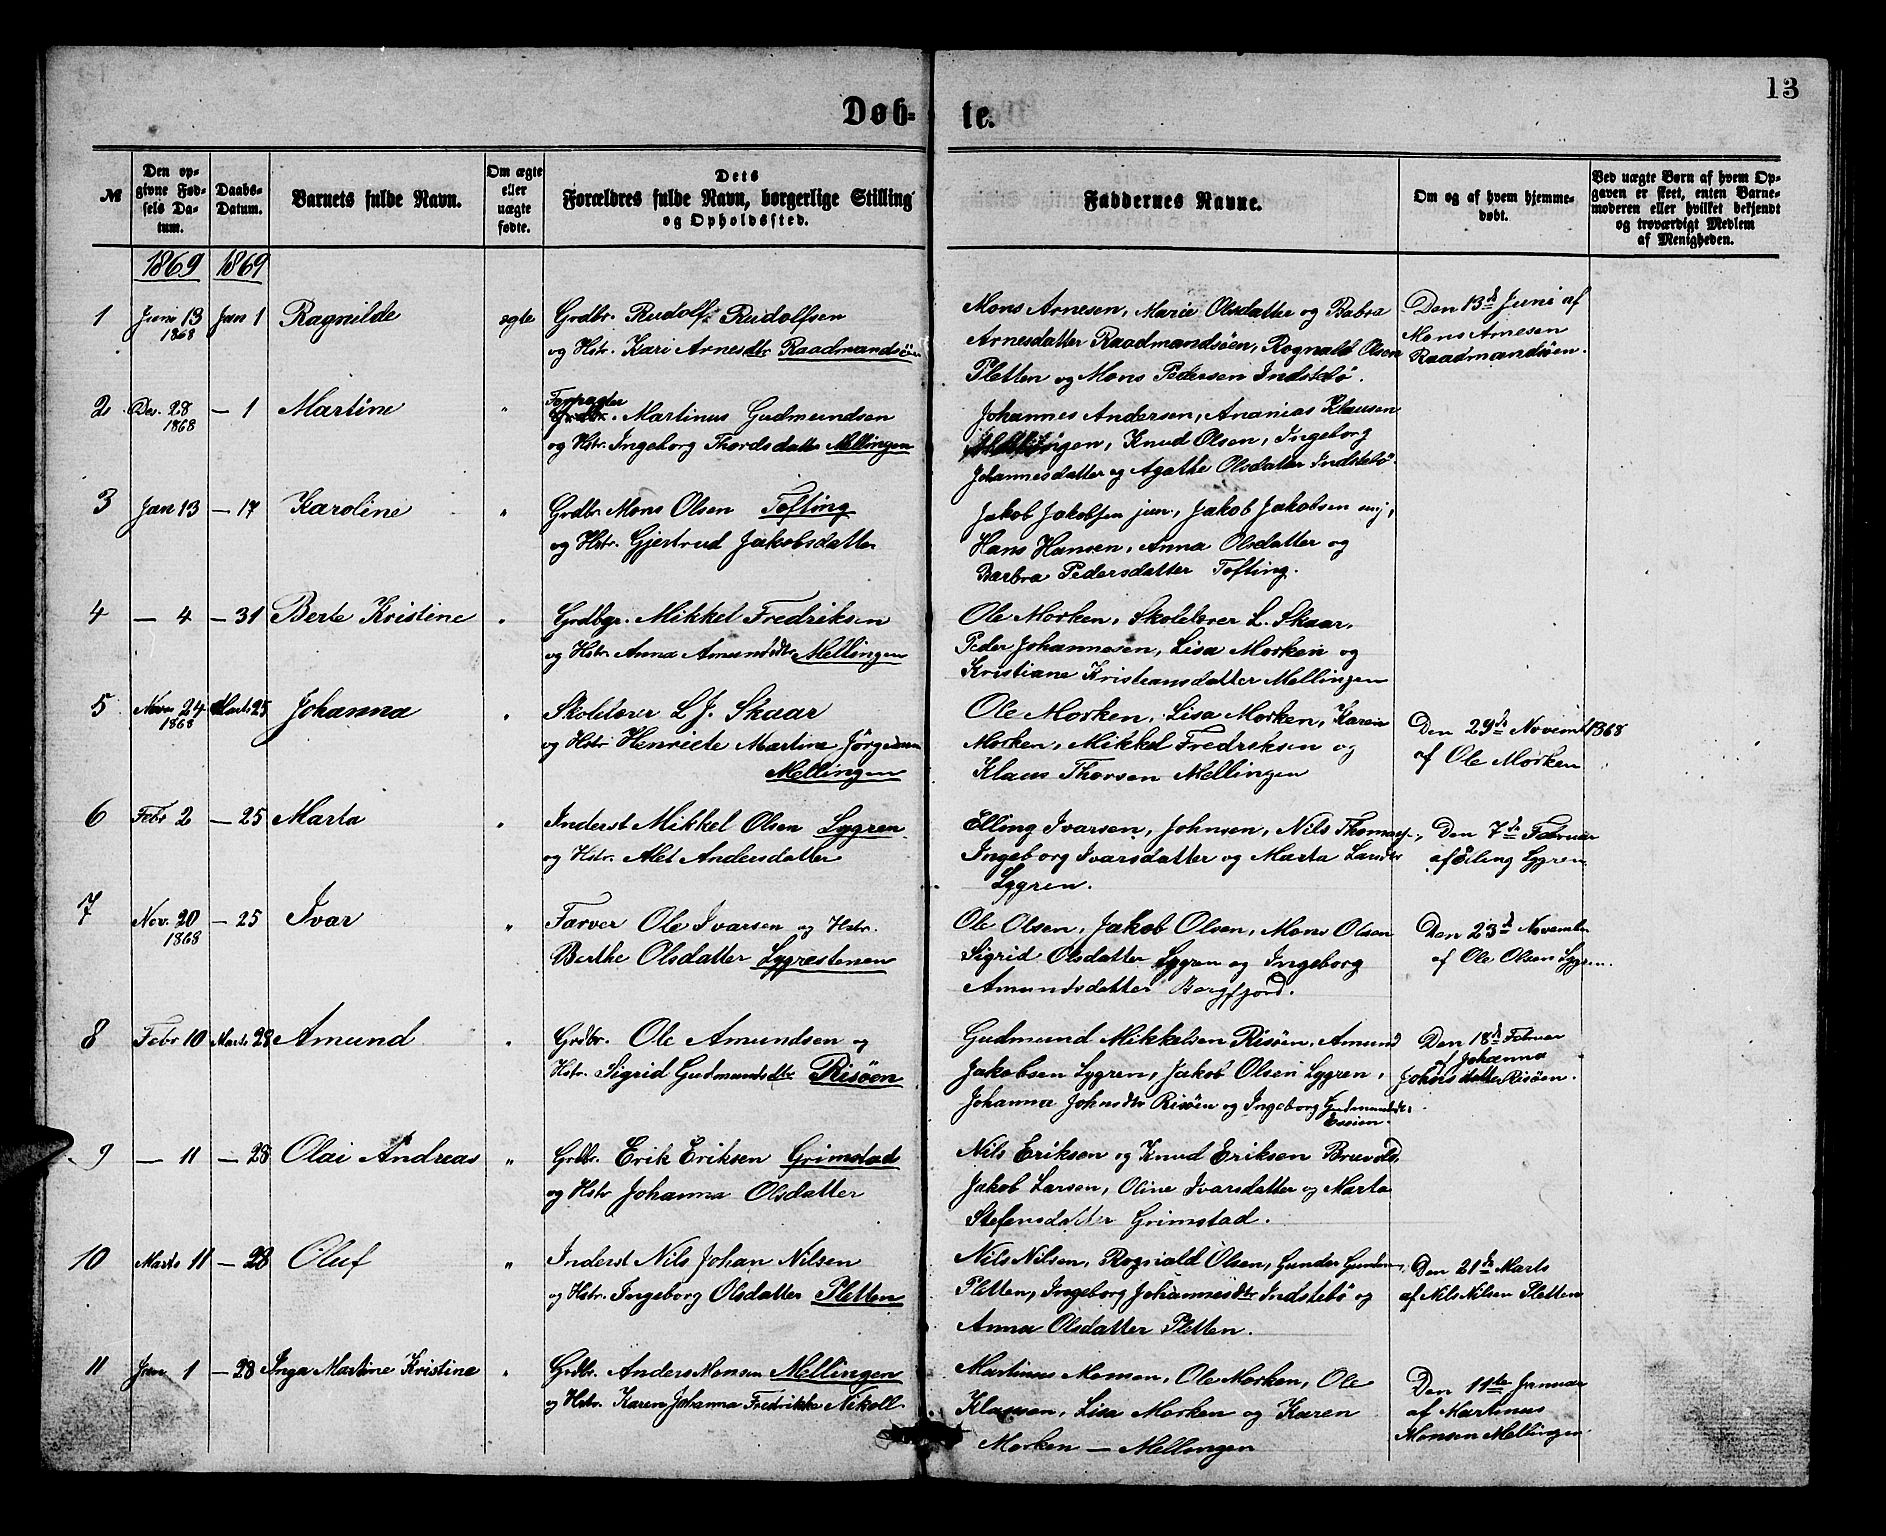 13
Døb- te.
№
Den op-
givne Fød-
sels Da-
tum.
Daabs-
Datum.
Barnets fulde Navn.
Om ægte
eller
uægte
fødte.
Dets
Forældres fulde Navn, borgerlige Stilling
og Opholdssted.
Faddernes Navne.
Om og af hvem hjemme-
døbt.
Ved uægte Børn af hvem Op-
gaven er skeet, enten Barne-
moderen eller hvilket bekjendt
og troværdigt Medlem
af Menigheden.
1869 1869
1 Juni 13 Jan 1 Ragnilde ægte Grdbr. Rudolf Rudolfsen
1868
og Hstr. Kari Arnesdtr Raadmandsöen
Mons Arnesen, Marie Olsdatte og Babra
Arnesdatter Raadmandsöen, Rognald Olsen
Pletten og Mons Pedersen Indstebö.
Den 13de Juni af
Mons Arnesen
Raadmandsöen.
2 Des. 28 — 1 Martine " Forpagter
1868
Grdbr. Martinus Gudmundsen
og Hstr. Ingeborg Thordsdatte Mellingen
Johannes Andersen, Ananias Klausen
Mellingen, Knud Olsen, Ingeborg
Johannesdatter og Agathe Olsdatter Indstebö
3 Jan 13 — 17 Karoline " Grdbr. Mons Olsen Tofting
og Hstr. Gjertrud Jakobsdatter
Jakob Jakobsen jun., Jakob Jakobsen
Hans Hansen, Anna Olsdatter og
Barbra Pedersdatter Tofting.
4 — 4 — 31 Berte Kristine " Grdbgr. Mikkel Fredriksen
og Hstr. Anna Amundsdtr Mellingen
Ole Morken, Skolelærer L. Skaar,
Peder Johannesen, Lisa Morken og
Kristiane Kristiansdatter Mellingen
5 Nov. 24 Marts 25 Johanna " Skolelærer L J. Skaar
1868
og Hstr Henriete Martine Jörgensen
Mellingen
Ole Morken, Lisa Morken, Karen
Morken, Mikkel Fredriksen og
Klaus Thorsen Mellingen
Den 29de Novemb 1868
af Ole Morken
6 Febr 2 — 25 Marta " Inderst Mikkel Olsen Lygren
og Hstr. Alet Andersdatter
Elling Ivarsen, Johnsen, Nils Thomas.,
Ingeborg Ivarsdatter og Marta Larsdtr
Lygren.
Den 7de Februar
af Elling Lygren
7 Nov. 20 — 25 Ivar " Farver Ole Ivarsen og Hstr.
1868
Berthe Olsdatter Lygrestenen
Ole Olsen, Jakob Olsen, Mons Olsen
Sigrid Olsdatter Lygren og Ingeborg
Amundsdatter Borgfjord.
Den 23de November
af Ole Olsen Lygren.
8 Febr 10 Marts 28 Amund " Grdbr. Ole Amundsen og
Hstr. Sigrid Gudmundsdtr Risöen
Gudmund Mikkelsen Risöen, Amund
Jakobsen Lygren, Jakob Olsen Lygren,
Johanna Johnsdtr Risöen og Ingeborg Gudmundsdtr
Den 18de Februar
af Johanna
Johnsdatter Risöen.
9 — 11 — 28 Olai Andreas " Grdbr. Erik Eriksen Grimstad
og Hstr Johanna Olsdatter
Nils Eriksen og Knud Eriksen Bruvold,
Jakob Larsen, Oline Ivarsdatter og Marta
Stefensdatter Grimstad.
10 Marts 11 — 28 Oluf " Inderst Nils Johan Nilsen
og Hstr. Ingeborg Olsdatter Pletten
Nils Nilsen, Rognald Olsen, Gunder
Pletten, Ingeborg Johannesdtr Indstebö og
Anna Olsdatter Pletten.
Den 21de Marts
af Nils Nilsen Pletten
11 Jan 1 — 28 Inga Martine Kristine " Grdbr. Anders Monsen Mellingen
og Hstr. Karen Johanna Fredrikke Nikoll.
Martinus Monsen, Ole Morken, Ole
Klausen, Lisa Morken og Karen
Morken — Mellingen
Den 11te Januar
af Martinus
Monsen Mellingen